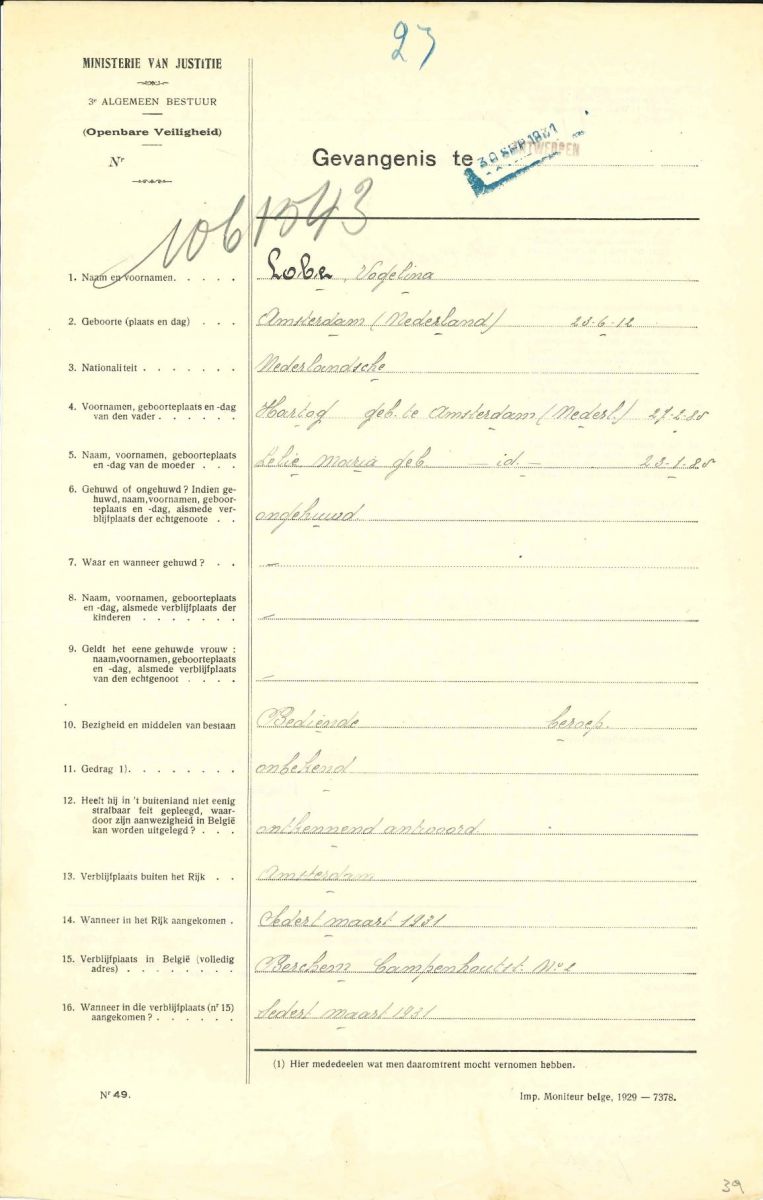 23
MINISTERIE VAN JUSTITIE
3e ALGEMEEN BESTUUR
(Openbare Veiligheid)
Nr
Gevangenis te ANTWERPEN
30 SEP 1931
1061543
1. Naam en voornamen. . . . . Lobe, Vogelina
2. Geboorte (plaats en dag) . . . Amsterdam (Nederland) 23-6-12
3. Nationaliteit . . . . . . . Nederlandsche
4. Voornamen, geboorteplaats en -dag
van den vader . . . . . . Hartog geb. te Amsterdam (Nederl.) 27-2-85
5. Naam, voornamen, geboorteplaats
en -dag van de moeder . . . Lelie Maria geb. — id. — 23-1-85
6. Gehuwd of ongehuwd ? Indien ge-
huwd, naam, voornamen, geboor-
teplaats en -dag, alsmede ver-
blijfplaats der echtgenoote . . ongehuwd.
7. Waar en wanneer gehuwd ? . . —
8. Naam, voornamen, geboorteplaats
en -dag, alsmede verblijfplaats der
kinderen . . . . . . . —
9. Geldt het eene gehuwde vrouw :
naam, voornamen, geboorteplaats
en -dag, alsmede verblijfplaats
van den echtgenoot . . . . —
10. Bezigheid en middelen van bestaan Bediende beroep.
11. Gedrag 1). . . . . . . . onbekend
12. Heeft hij in 't buitenland niet eenig
strafbaar feit gepleegd, waar-
door zijn aanwezigheid in België
kan worden uitgelegd ? . . . ontkennend antwoord
13. Verblijfplaats buiten het Rijk . . Amsterdam
14. Wanneer in het Rijk aangekomen . Sedert maart 1931
15. Verblijfplaats in België (volledig
adres) . . . . . . . . Berchem Campenhoutst. No 2
16. Wanneer in die verblijfplaats (nr 15)
aangekomen ? . . . . . . Sedert maart 1931
(1) Hier mededeelen wat men daaromtrent mocht vernomen hebben.
Nr 49.
Imp. Moniteur belge, 1929 — 7378.
39